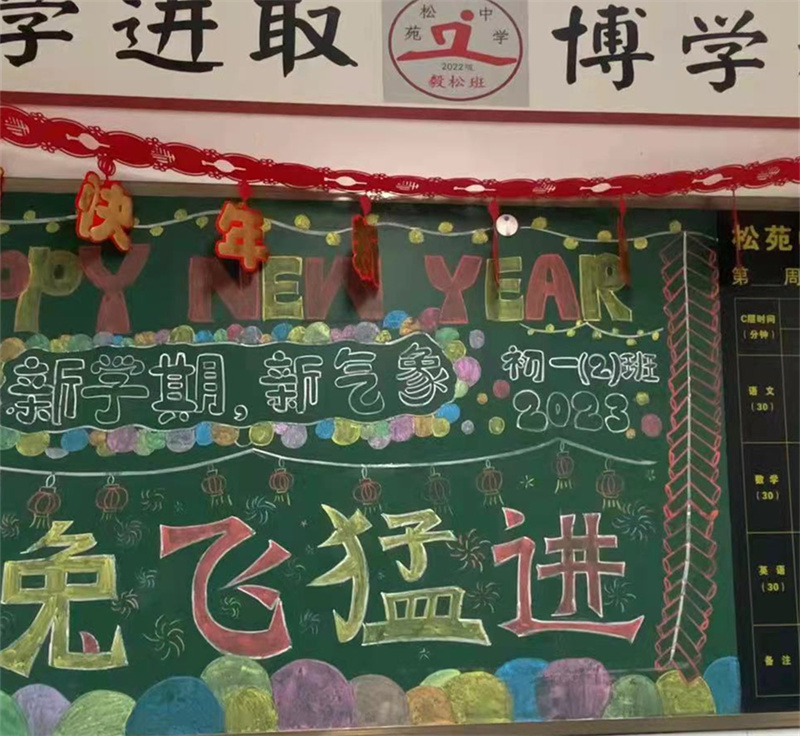 学进取
松苑中学
2022级
毅松班
博学
快年
PPY NEW YEAR
新学期,新气象
初一(2)班
2023
兔飞猛进
松苑
第 周
C层时间
(分钟)
语文
(30)
数学
(30)
英语
(30)
备注